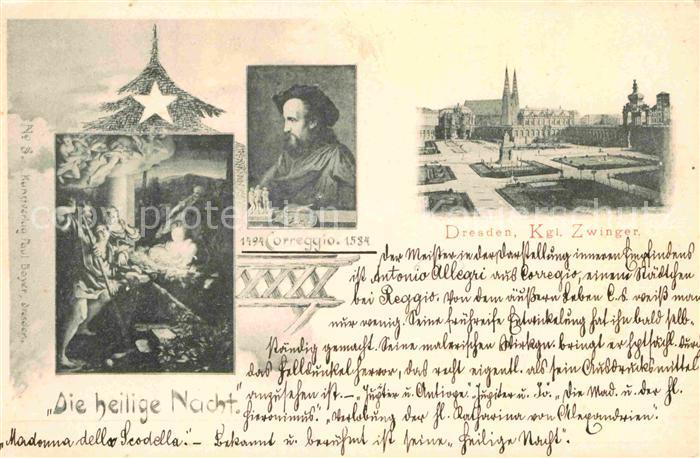 No 3. Kunstverlag Paul Beyer, Dresden.
1494 Correggio. 1534
Dresden, Kgl. Zwinger.
"Die heilige Nacht."
Der Meister in der Darstellung inneren Empfindens
ist Antonio Allegri aus Corregio, einem Städtchen
bei Reggio. Von dem äußern Leben C.s weiß man
nur wenig. Seine frühreife Entwickelung hat ihn bald selb-
ständig gemacht. Seine malerischen Wirkgn. bringt er hptsächl. durch
das Helldunkel hervor, das recht eigentl. als sein Ausdrucksmittel
anzusehen ist. – "Jupiter u. Antiope." Jupiter u. Jo. "Die Mad. u. der hl.
Hieronimus." "Verlobung der hl. Katharina von Alexandrien".
"Madonna della Scodella." – Bekannt u. berühmt ist seine "Heilige Nacht".
Copyright protection Kolonialwarenschutz